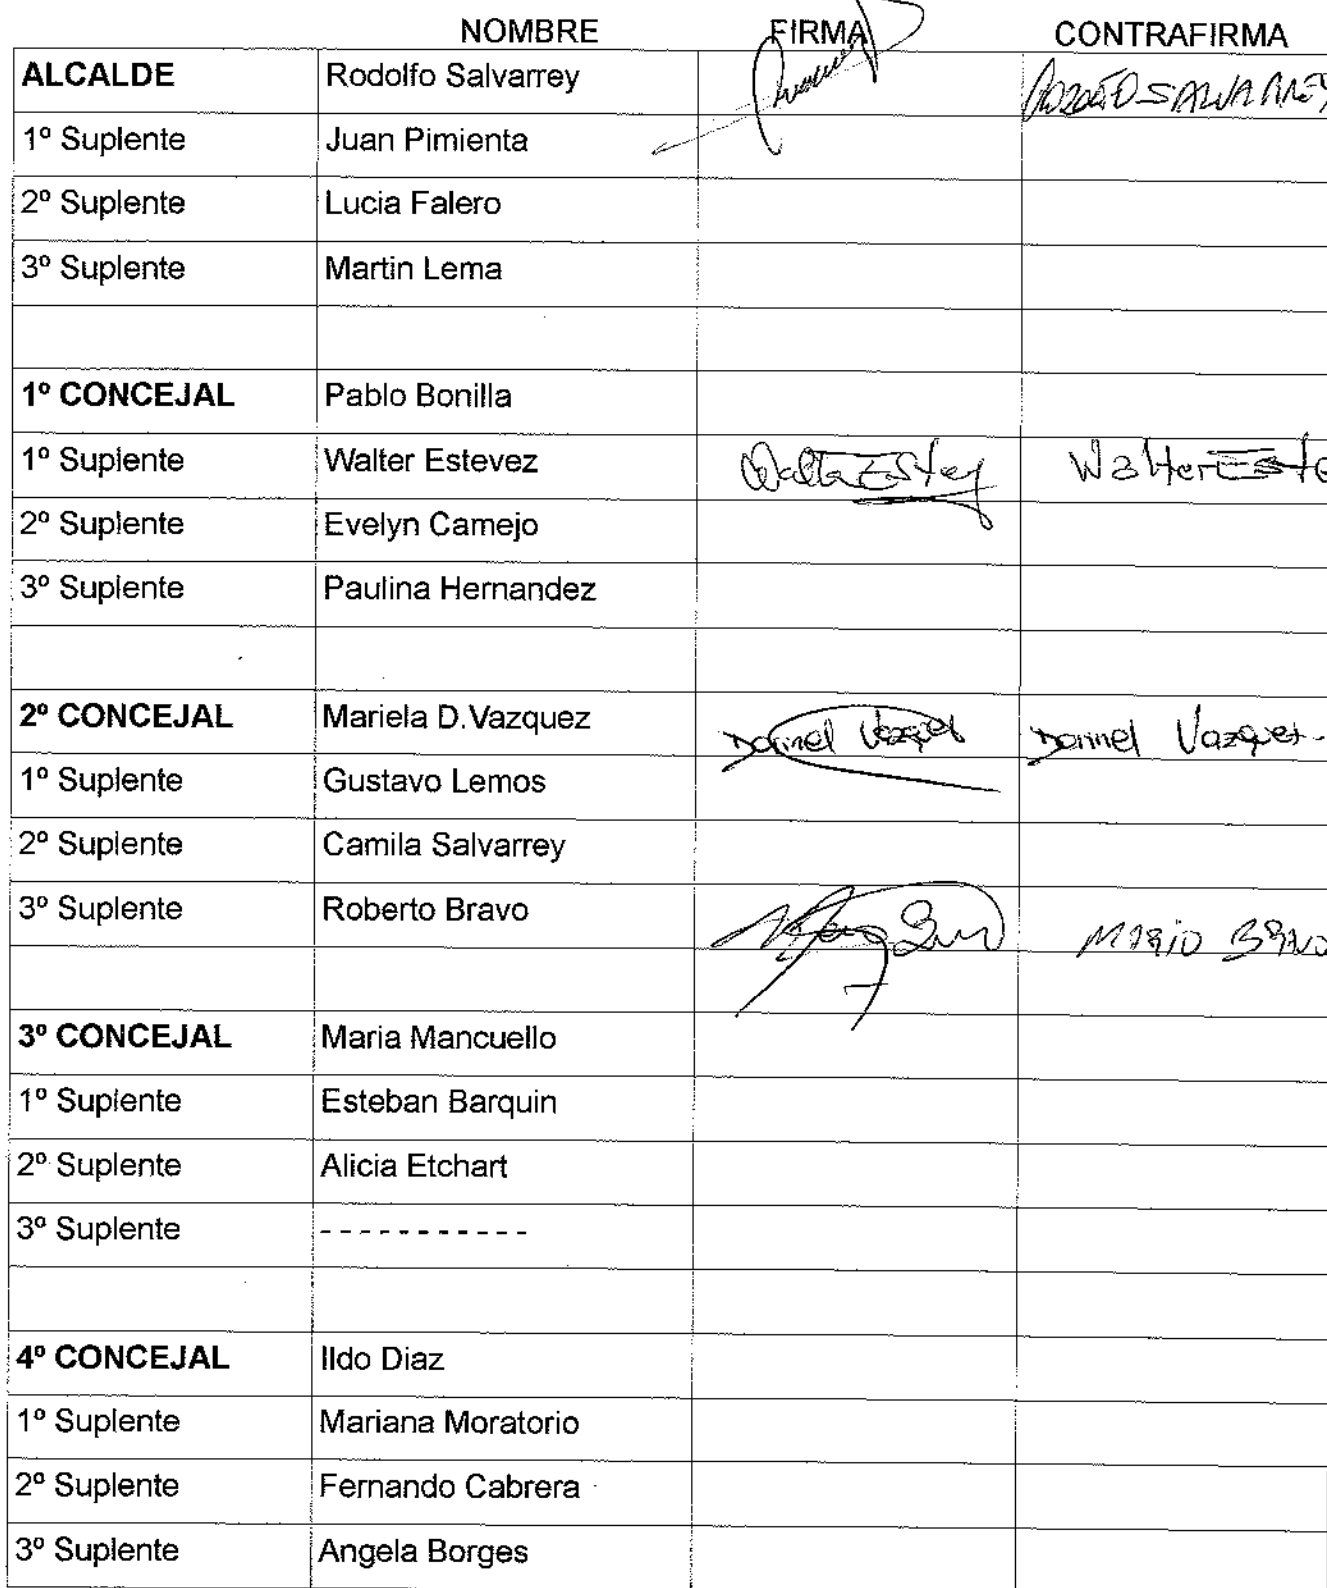 NOMBRE FIRMA CONTRAFIRMA
ALCALDE Rodolfo Salvarrey RODOLFO SALVARREY
1º Suplente Juan Pimienta
2º Suplente Lucia Falero
3º Suplente Martin Lema
1º CONCEJAL Pablo Bonilla
1º Suplente Walter Estevez Walter Estev Walter Este
2º Suplente Evelyn Camejo
3º Suplente Paulina Hernandez
2º CONCEJAL Mariela D.Vazquez Daniel Vazquez Daniel Vazquez
1º Suplente Gustavo Lemos
2º Suplente Camila Salvarrey
3º Suplente Roberto Bravo MARIO BRAVO
3º CONCEJAL Maria Mancuello
1º Suplente Esteban Barquin
2º Suplente Alicia Etchart
3º Suplente - - - - - - - - - - -
4º CONCEJAL Ildo Diaz
1º Suplente Mariana Moratorio
2º Suplente Fernando Cabrera
3º Suplente Angela Borges